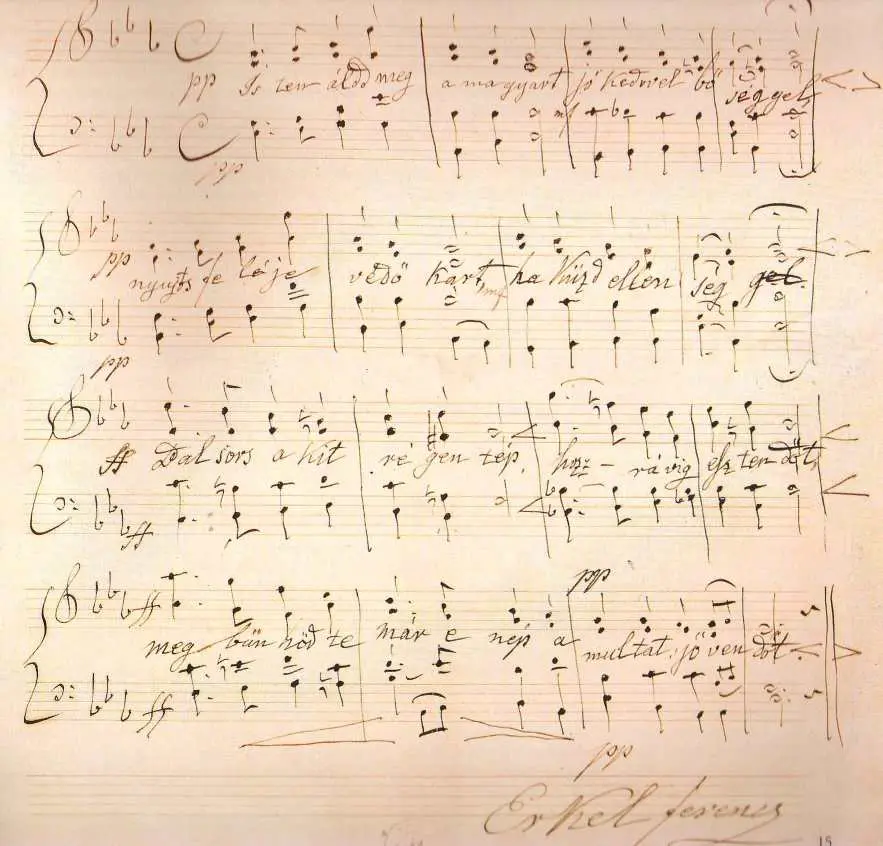 pp Is ten áldd meg a magyart jó kedvvel bő séggel,
mf
pp
pp nyujts fe léje védő kart, mf ha küzd ellen ség gel.
pp
ff Bal sors a kit ré gen tép, hozz – rá víg esz ten dőt,
ff
pp
ff meg bűn hőd te már e nép a multat jöven dőt
ff
pp
Erkel ferencz
15